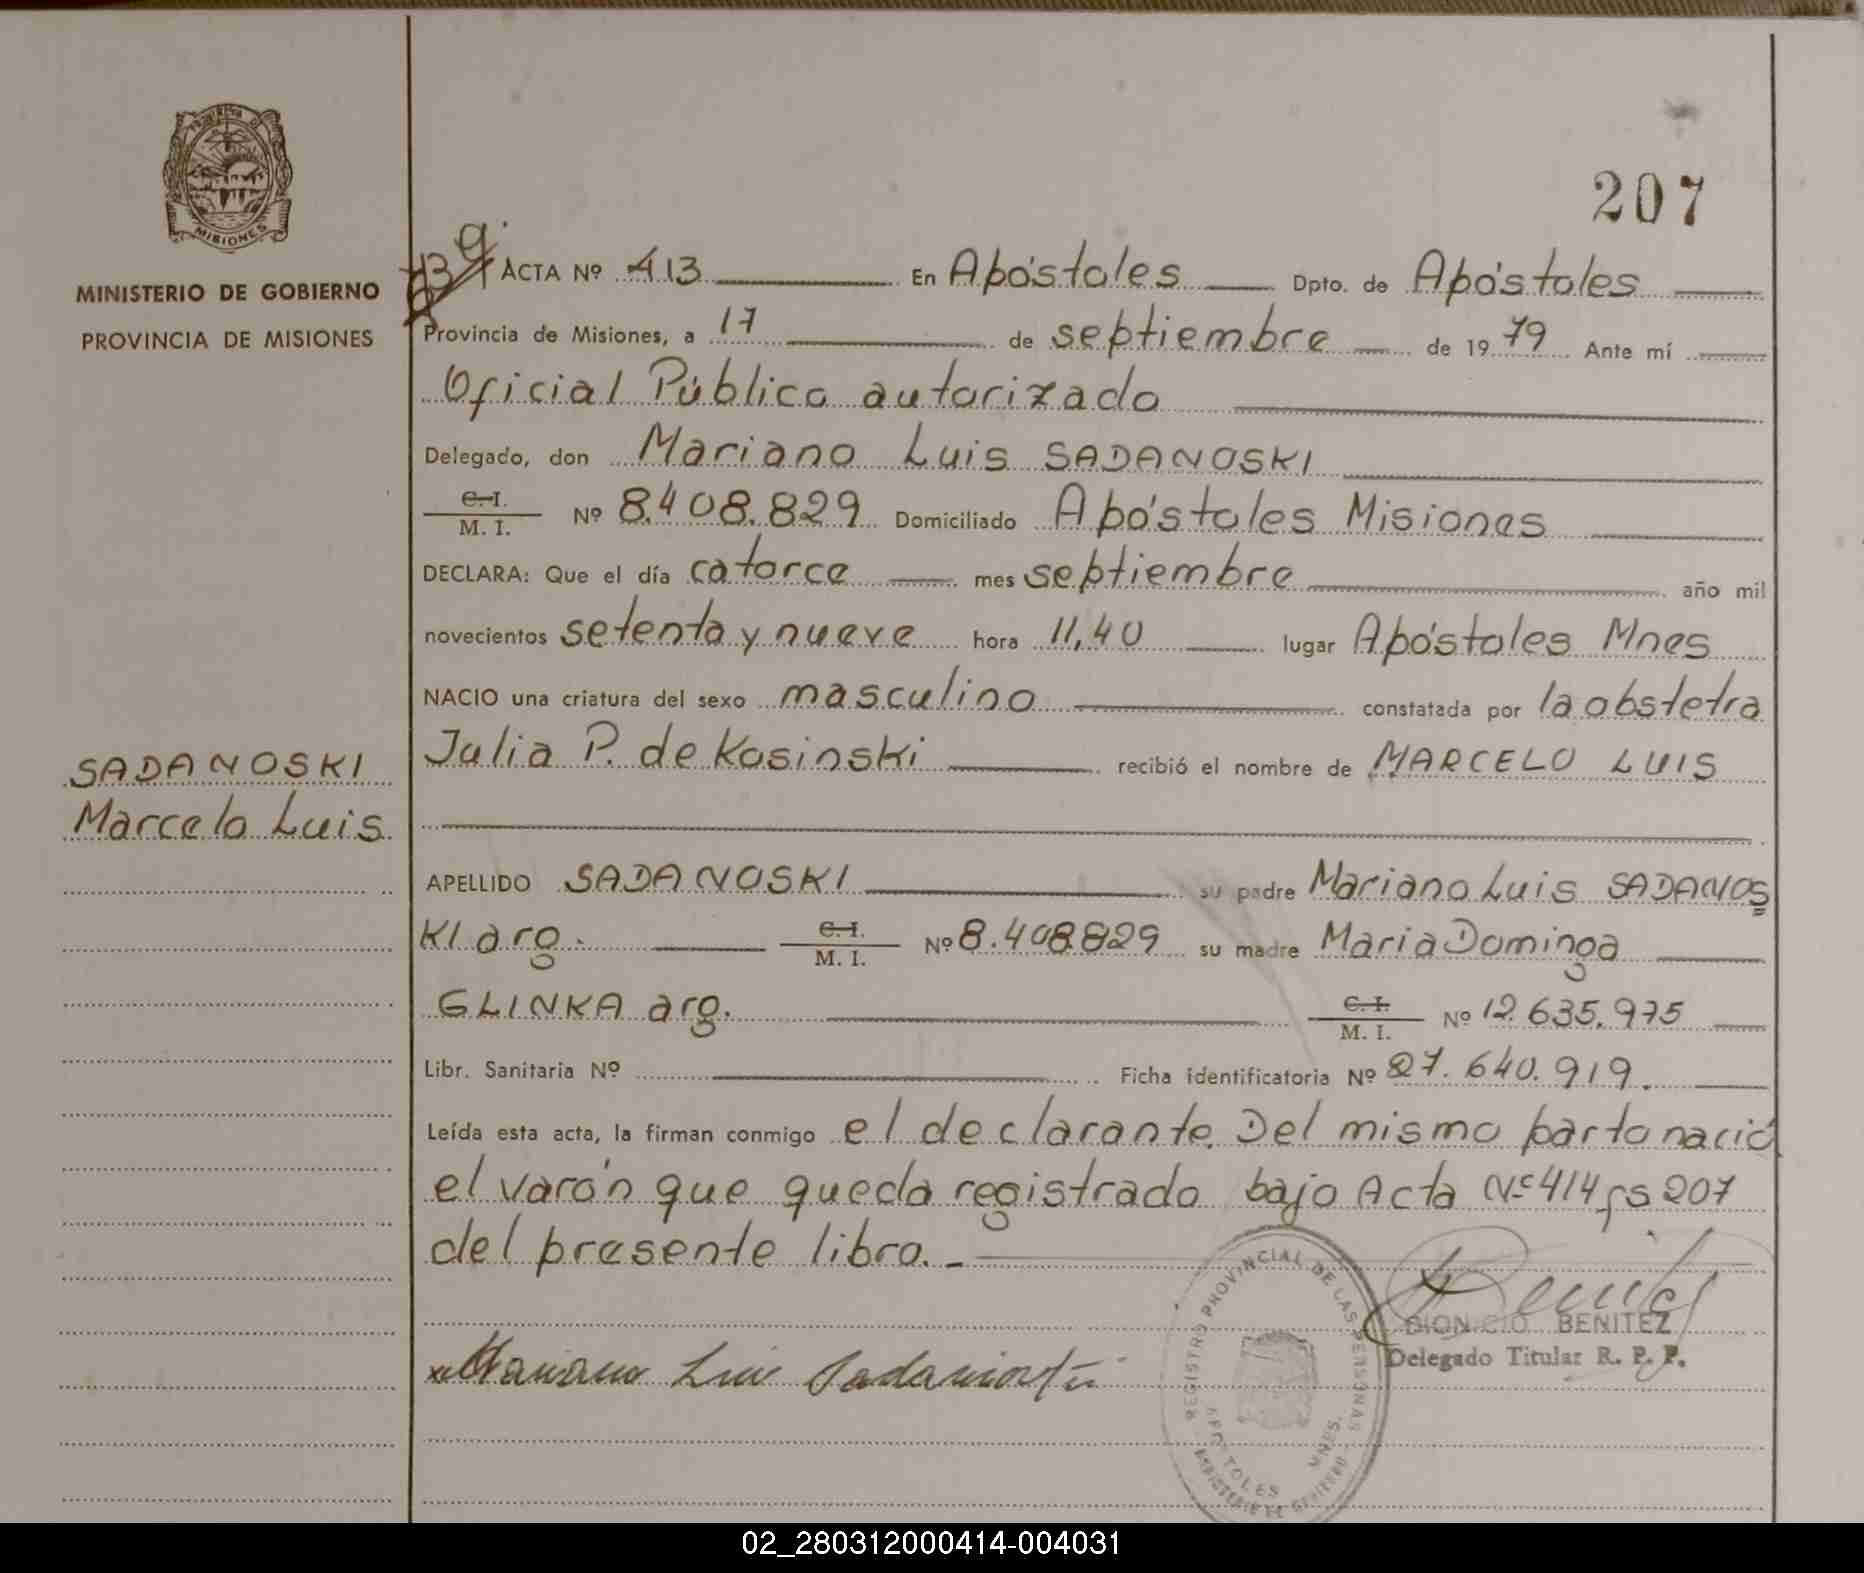 207
MISIONES
MINISTERIO DE GOBIERNO
PROVINCIA DE MISIONES
ACTA Nº 413 En Apóstoles Dpto. de Apóstoles
Provincia de Misiones, a 17 de septiembre de 1979 Ante mí
Oficial Público autorizado
Delegado, don Mariano Luis SADANOSKI
C. I. / M. I. Nº 8.408.829 Domiciliado Apóstoles Misiones
DECLARA: Que el día catorce mes septiembre año mil
novecientos setenta y nueve hora 11,40 lugar Apóstoles Mnes
NACIO una criatura del sexo masculino constatada por la obstetra
Julia P. de Kosinski recibió el nombre de MARCELO LUIS
SADANOSKI
Marcelo Luis
APELLIDO SADANOSKI su padre Mariano Luis SADANOS
KI arg. C. I. / M. I. Nº 8.408.829 su madre Maria Dominga
GLINKA arg. C. I. / M. I. Nº 12.635.975
Libr. Sanitaria Nº Ficha identificatoria Nº 27.640.919.
Leída esta acta, la firman conmigo el declarante. Del mismo parto nació
el varón que queda registrado bajo Acta Nº 414 fs 207
del presente libro.-
DIONICIO BENITEZ
Delegado Titular R. P. P.
Mariano Luis
REGISTRO PROVINCIAL DE LAS PERSONAS
APOSTOLES MNES.
MINISTERIO DE GOBIERNO
02_280312000414-004031